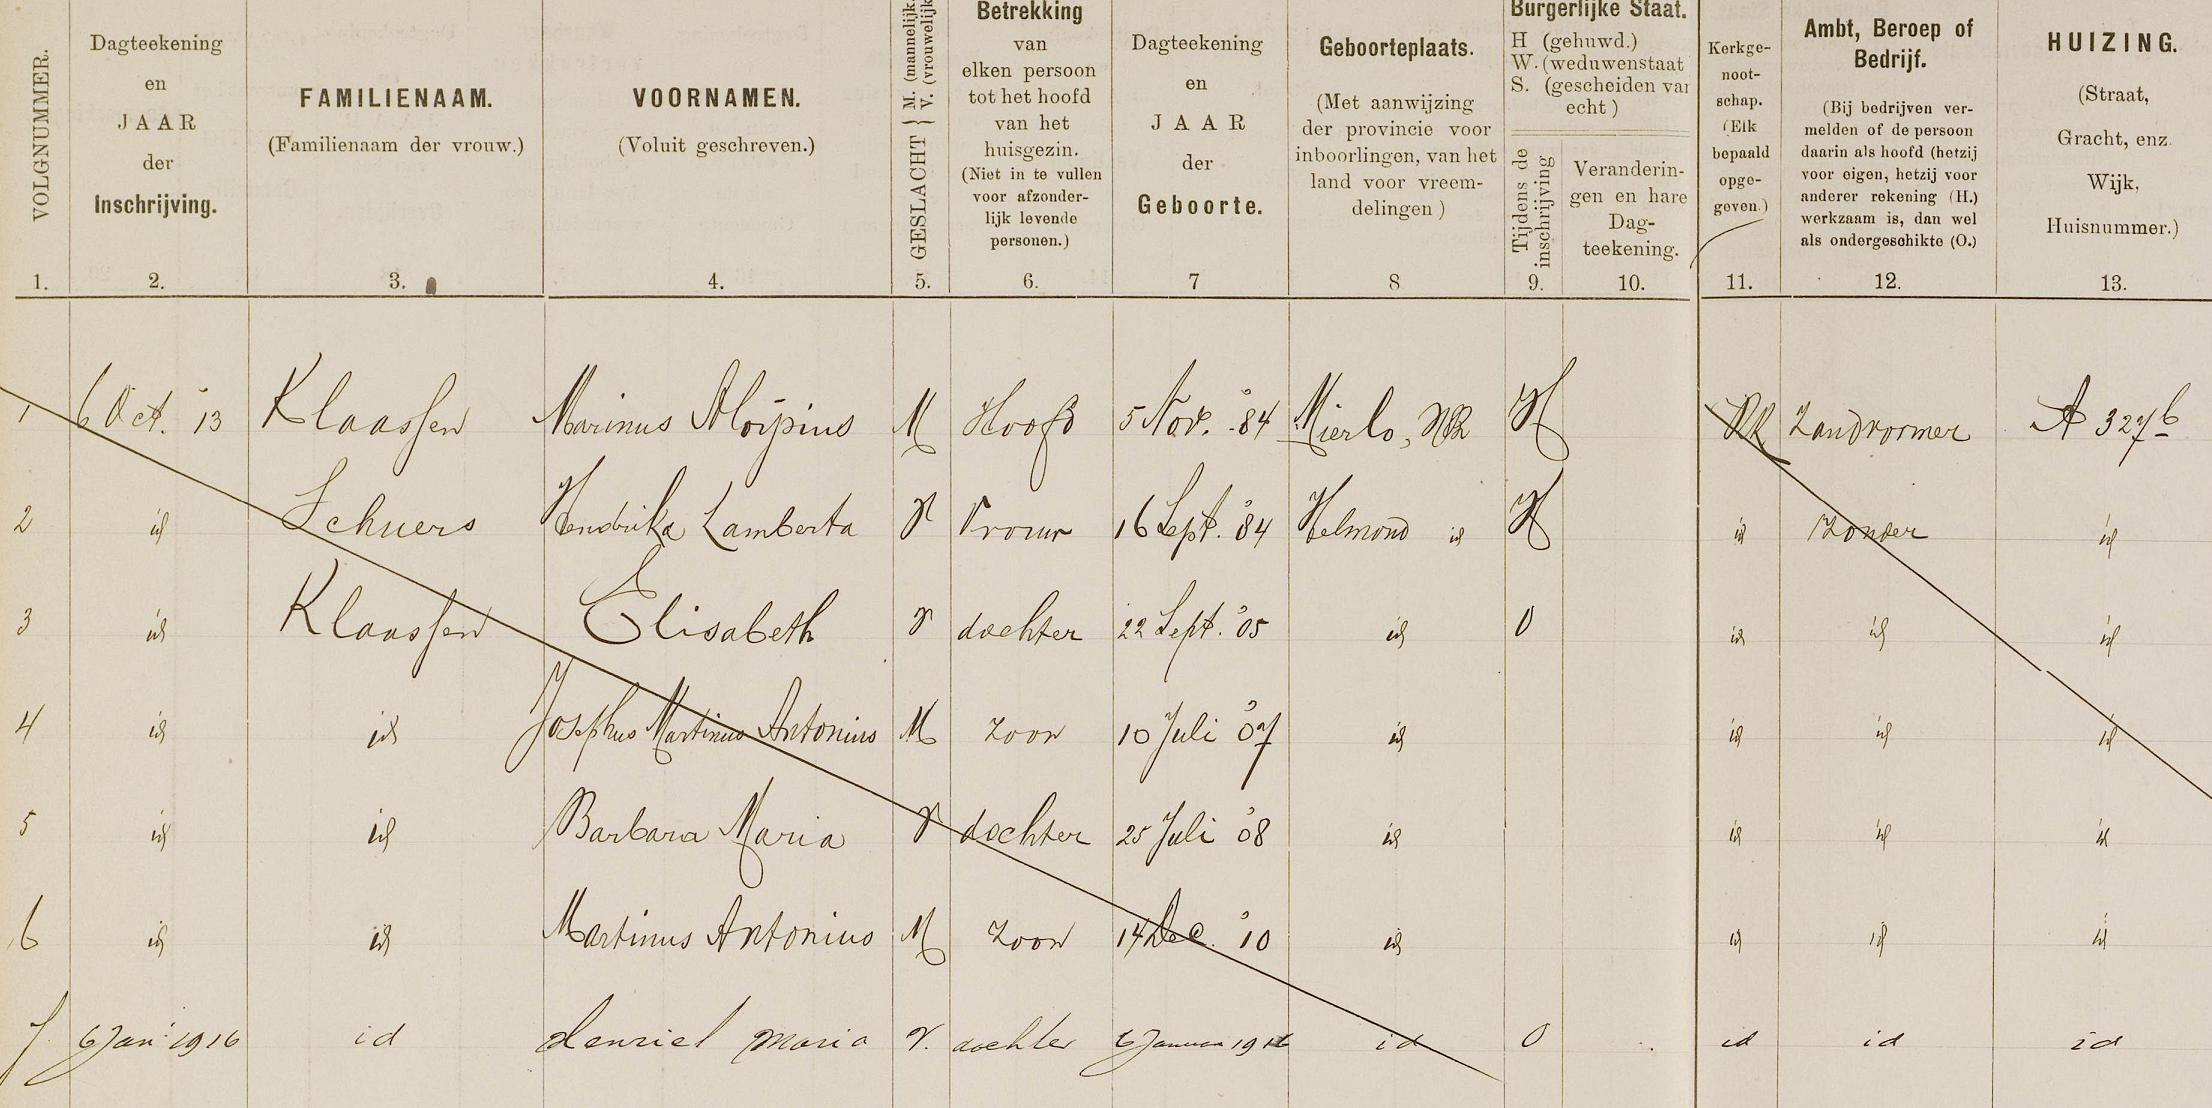 VOLGNUMMER.
1.
Dagteekening
en
JAAR
der
Inschrijving.
2.
FAMILIENAAM.
(Familienaam der vrouw.)
3.
VOORNAMEN.
(Voluit geschreven.)
4.
GESLACHT { M. (mannelijk.
V. (vrouwelijk
5.
Betrekking
van
elken persoon
tot het hoofd
van het
huisgezin.
(Niet in te vullen
voor afzonder-
lijk levende
personen.)
6.
Dagteekening
en
JAAR
der
Geboorte.
7
Geboorteplaats.
(Met aanwijzing
der provincie voor
inboorlingen, van het
land voor vreem-
delingen)
8
Burgerlijke Staat.
H (gehuwd.)
W. (weduwenstaat
S. (gescheiden van
echt)
Tijdens de
inschrijving
9.
Veranderin-
gen en hare
Dag-
teekening.
10.
Kerkge-
noot-
schap.
(Elk
bepaald
opge-
geven.)
11.
Ambt, Beroep of
Bedrijf.
(Bij bedrijven ver-
melden of de persoon
daarin als hoofd (hetzij
voor eigen, hetzij voor
anderer rekening (H.)
werkzaam is, dan wel
als ondergeschikte (O.)
12.
HUIZING.
(Straat,
Gracht, enz.
Wijk,
Huisnummer.)
13.
1 6 Oct. '13 Klaassen Marinus Aloijsius M Hoofd 5 Nov. '84 Mierlo, NB H RK Zandvormer A 327b
2 id Schuers Hendrika Lamberta V Vrouw 16 Sept. '84 Helmond id H id Zonder id
3 id Klaassen Elisabeth V dochter 22 Sept. '05 id O id id id
4 id id Josephus Martinus Antonius M zoon 10 Juli '07 id id id id
5 id id Barbara Maria V dochter 25 Juli '08 id id id id
6 id id Martinus Antonius M zoon 14 Dec. '10 id id id id
7 6 Jan 1916 id Maria V. dochter 6 Januari 1916 id O id id id